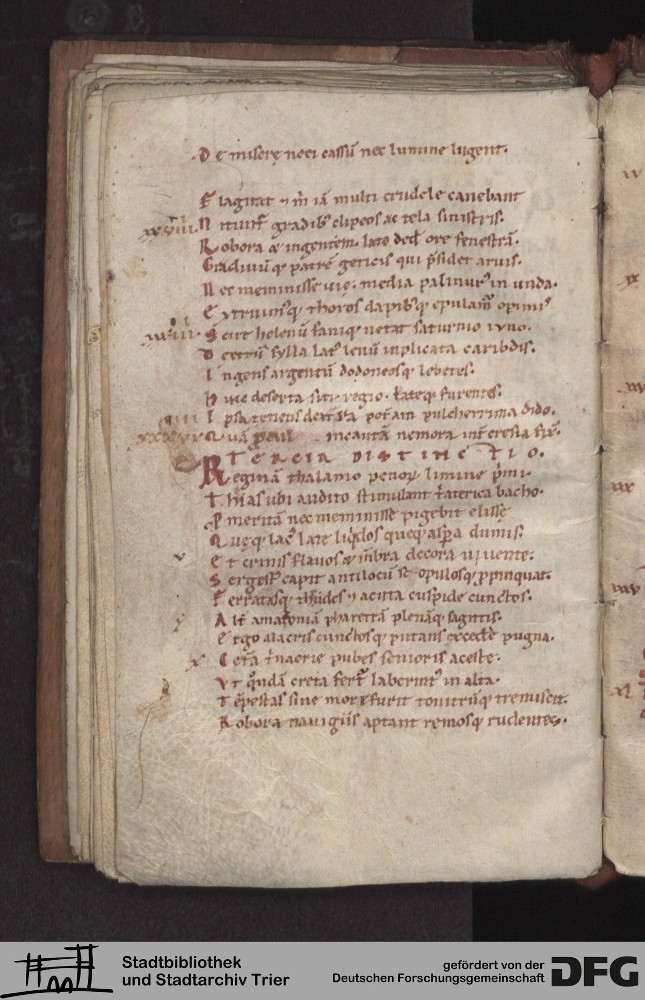 De miserę neci cassū nec lumine lugent.
Flagitat ⁊ m̄ iā multi crudele canebant
Nitunt᷑ gradib; clipeos ac tela sinistris.
Robora & ingentem lato ded͛ ore fenestrā.
Gradiuū q; patrē geticis qui p̄sidet aruis.
Nec meminisse uię. media palinur᷒ in unda.
Scire helenū fariq; uetat saturnia iuno.
Dextrū sylla lat᷒ leuū inplicata caribdis.
Ingens argentū dodoneosq; lebetes.
Huic deserta siti regio. lateq; furentes.
Ipsa tenens dextra pat͛am pulcherrima dido.
TERCIA DISTINCTIO.
Reginā thalamo limine p̄mi.
Thias ubi audito stimulant t͛aterica bacho.
meritā nec meminisse pigebit elissę
Quęq; lac᷒ late liq̇dos queq; aspera dumis.
v
Et crinis flauos & mēbra decora iuuente.
Sergest᷒ capit ante locū scopulosq; p̄pinquat.
Ferratasq; ⁊ acuta cuspide cunctos.
Alt͛ amazoniā pharetrā plenāq; sagittis.
Ergo alacris cunctosq; putans excede͛ pugna.
x
Cet͛a t͛nacrie pubes senioris aceste.
Vt q̊ndā creta fert᷑ laberint᷒ in alta.
Tēpestas sine more furit tonitruq; tremiscit.
Robora nauigiis aptant remosq; rudentes.
Stadtbibliothek
und Stadtarchiv Trier
gefördert von der
Deutschen Forschungsgemeinschaft
DFG